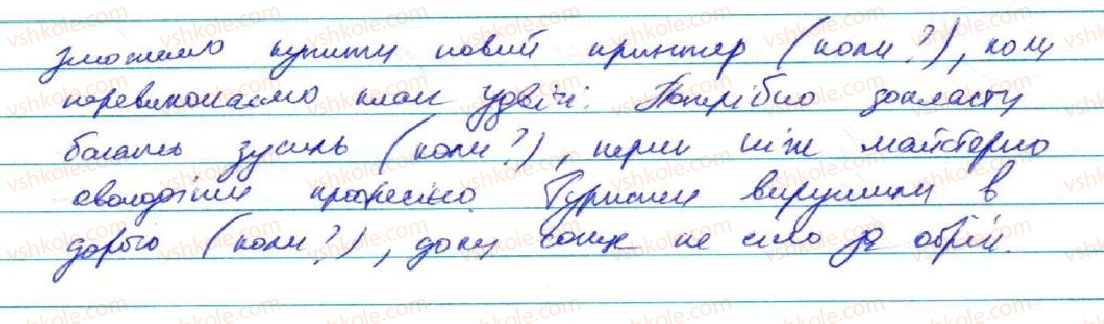 зможемо купити новий принтер (коли?), коли
перевиконаємо план удвічі. Потрібно докласти
багато зусиль (коли?), перш ніж майстерно
оволодіти професією. Туристи вирушили в
дорогу (коли?), доки сонце не сіло за обрій.